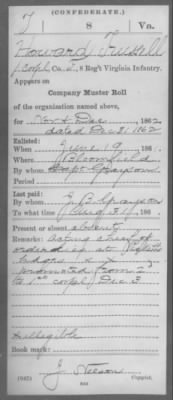 (CONFEDERATE.)
T 8 Va.
Howard Trussell
1 Corpl, Co. , 8 Reg't Virginia Infantry.
Appears on
Company Muster Roll
of the organization named above,
for Nov & Dec, 1862.
dated Dec 31 1862
Enlisted:
When June 19, 186 .
Where Bloomfield
By whom Capt Grayson
Period
Last paid:
By whom Grayson
To what time Aug 31, 186 .
Present or absent absent
Remarks: Acting chief of
ordered
promoted from 2
to 1st corpl Dec 5
Book mark:
J
(642) Copyist.